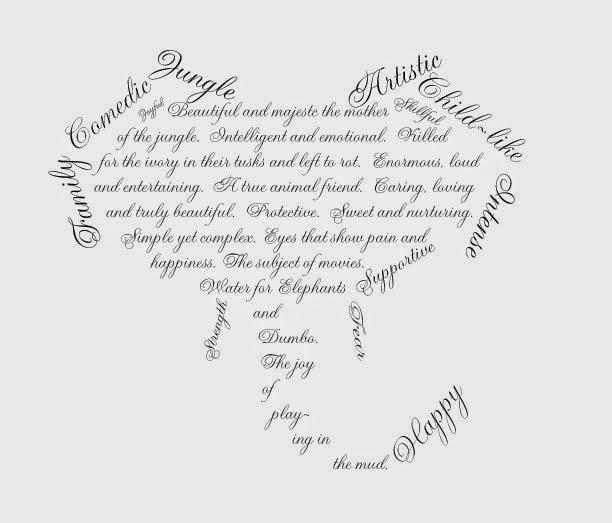 Jungle
Comedic
Family
Joyful
Artistic
Skillful
Child~like
Intense
Beautiful and majestc the mother
of the jungle. Intelligent and emotional. Killed
for the ivory in their tusks and left to rot. Enormous, loud
and entertaining. A true animal friend. Caring, loving
and truly beautiful. Protective. Sweet and nurturing.
Simple yet complex. Eyes that show pain and
happiness. The subject of movies.
Water for Elephants
Supportive
Strength
Fear
and
Dumbo.
The joy
of
play~
ing in
the mud.
Happy